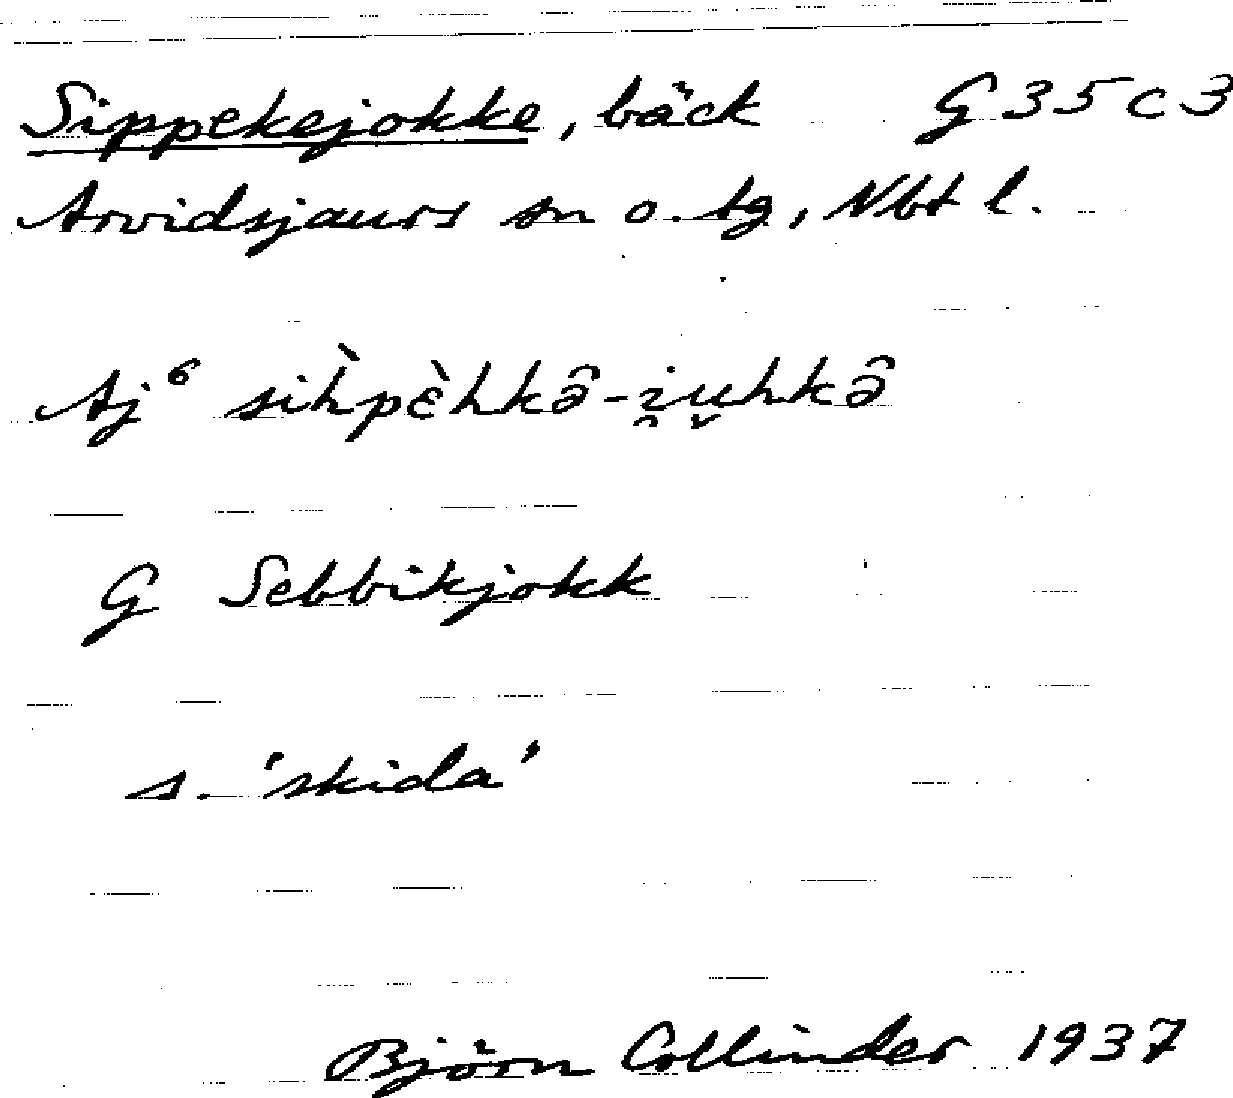 Sippekejokke, bäck G 35 c 3
Arvidsjaurs sn o. tg, Nbt l.
Aj⁶ sih̀pɛ̀hkə̂-i̯u̬hkə̂
G Sebbikjokk
s. 'skida'
Björn Collinder 1937